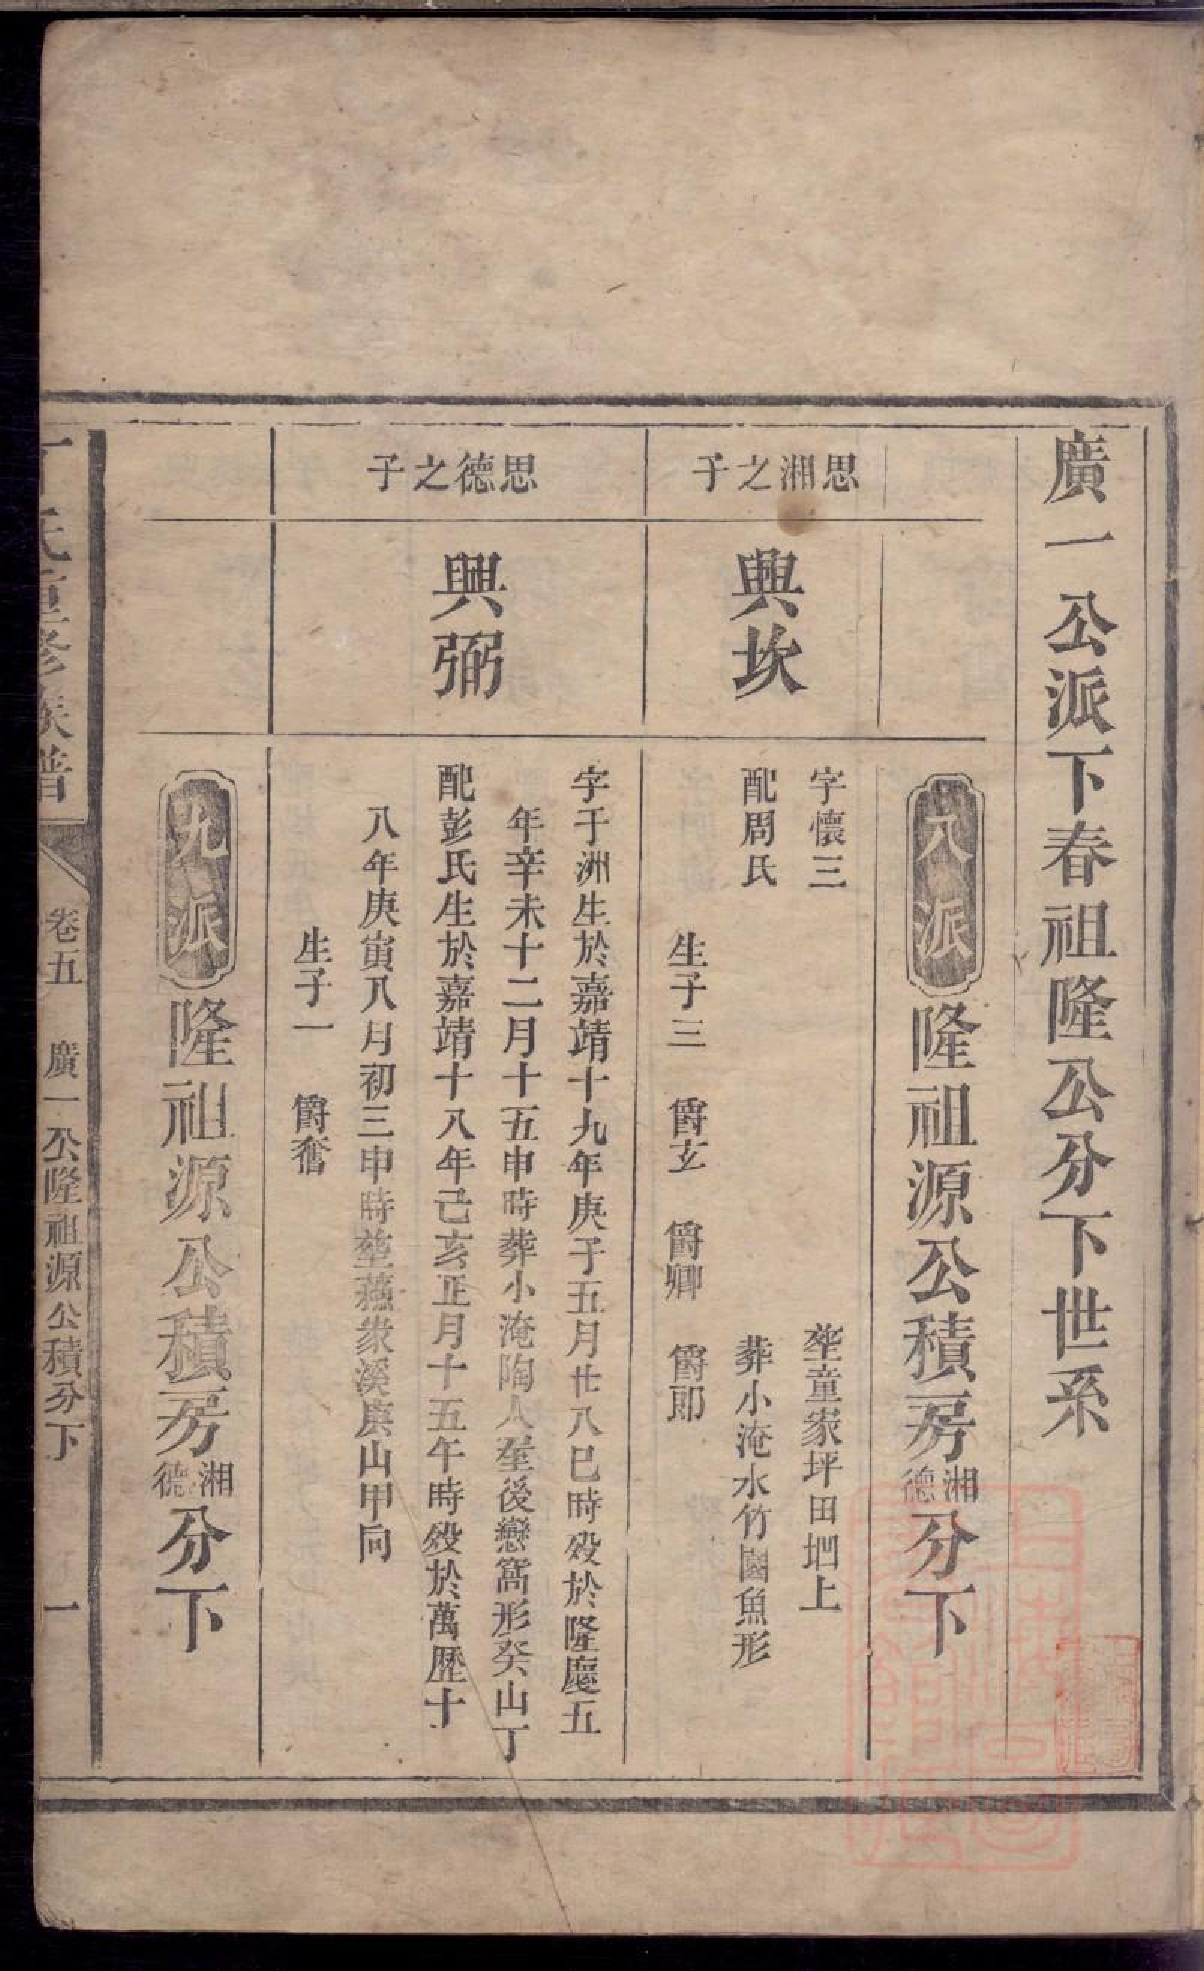 廣一公派下春祖隆公分下世系
八派 隆祖源公積房湘德分下
思湘之子
興坎
字懷三 塟童家坪田垇上
配周氏 葬小淹水竹園魚形
生子三 爵玄 爵卿 爵郎
思德之子
興弼
字于洲生於嘉靖十九年庚子五月廿八巳時歿於隆慶五
年辛未十二月十五申時葬小淹陶人塋後戀窩形癸山丁
配彭氏生於嘉靖十八年己亥正月十五午時歿於萬歷十
八年庚寅八月初三申時塟蕪象溪庚山甲向
生子一 爵奮
九派 隆祖源公積房湘德分下
氏重修族譜 卷五 廣一公隆祖源公積分下 一